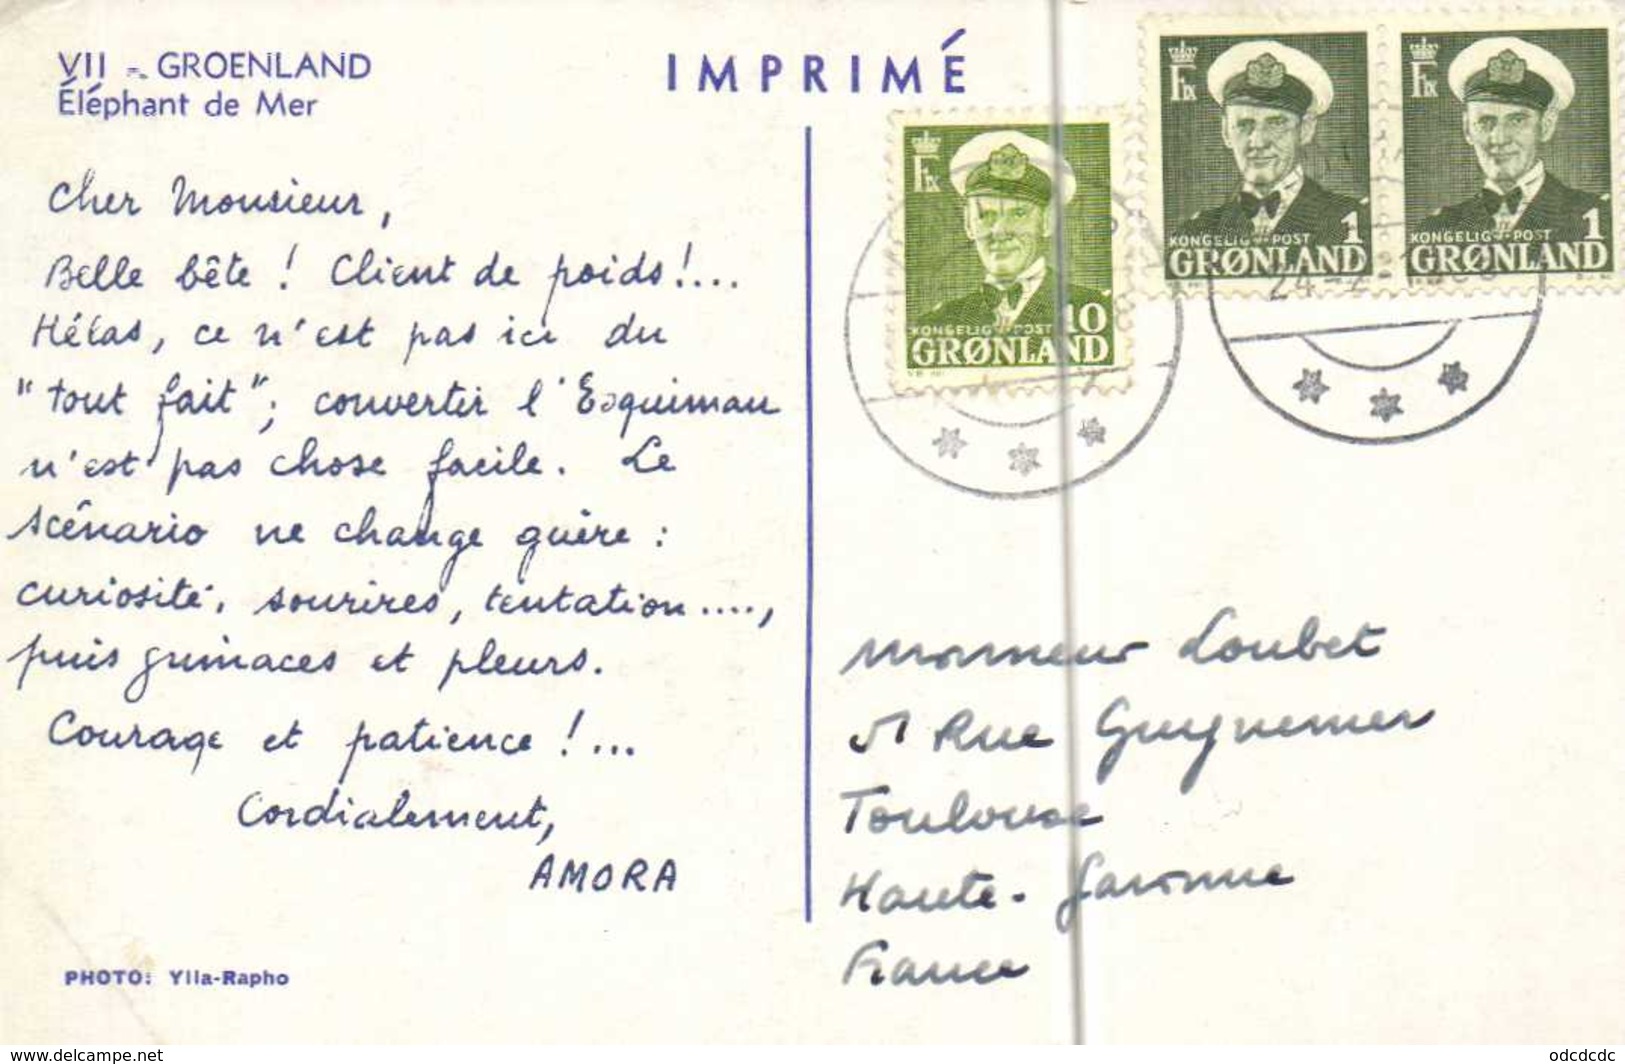 VII - GROENLAND
Éléphant de Mer
IMPRIMÉ
Cher Monsieur,
Belle bête ! Client de poids !....
Hélas, ce n'est pas ici du
"tout fait", convertir l'Esquimau
n'est pas chose facile. Le
scénario ne change guère :
curiosité, sourires, tentation....,
puis grimaces et pleurs.
Courage et patience !...
Cordialement,
AMORA
PHOTO: Ylla-Rapho
KONGELIG POST 10
GRØNLAND
KONGELIG POST 1
GRØNLAND
KONGELIG POST 1
GRØNLAND
24
Monsieur Loubet
Rue Guynemer
Toulouse
Haute-Garonne
France
http://www.delcampe.net
odcdcdc